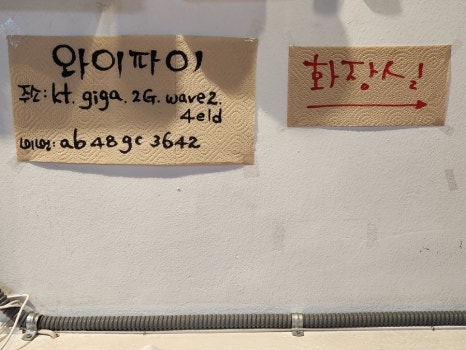 와이파이
주소: kt. giga. 2G. wave2.
4eld
비번: ab48gc3642
화장실